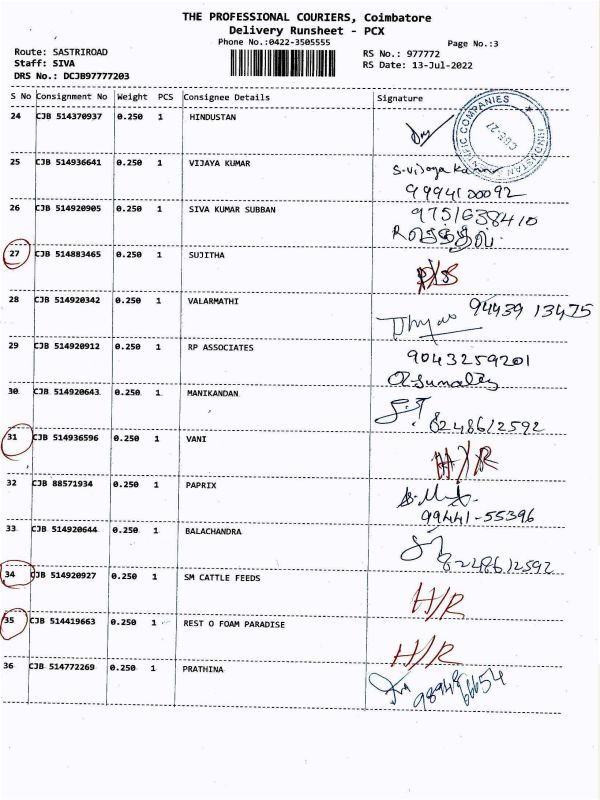 THE PROFESSIONAL COURIERS, Coimbatore
Delivery Runsheet - PCX
Phone No.:0422-3505555
Page No.:3
Route: SASTRIROAD
RS No.: 977772
Staff: SIVA
RS Date: 13-Jul-2022
DRS No.: DCJB97777203
S No Consignment No Weight PCS Consignee Details Signature
24 CJB 514370937 0.250 1 HINDUSTAN
25 CJB 514936641 0.250 1 VIJAYA KUMAR S.Vijaya Kumar
9994100092
26 CJB 514920905 0.250 1 SIVA KUMAR SUBBAN 9751638410
27 CJB 514883465 0.250 1 SUJITHA
28 CJB 514920342 0.250 1 VALARMATHI 94439 13475
29 CJB 514920912 0.250 1 RP ASSOCIATES 9043259201
30 CJB 514920643 0.250 1 MANIKANDAN
8248612592
31 CJB 514936596 0.250 1 VANI H/R
32 CJB 88571934 0.250 1 PAPRIX
99441-55396
33 CJB 514920644 0.250 1 BALACHANDRA
8248612592
34 CJB 514920927 0.250 1 SM CATTLE FEEDS H/R
35 CJB 514419663 0.250 1 REST O FOAM PARADISE H/R
36 CJB 514772269 0.250 1 PRATHINA